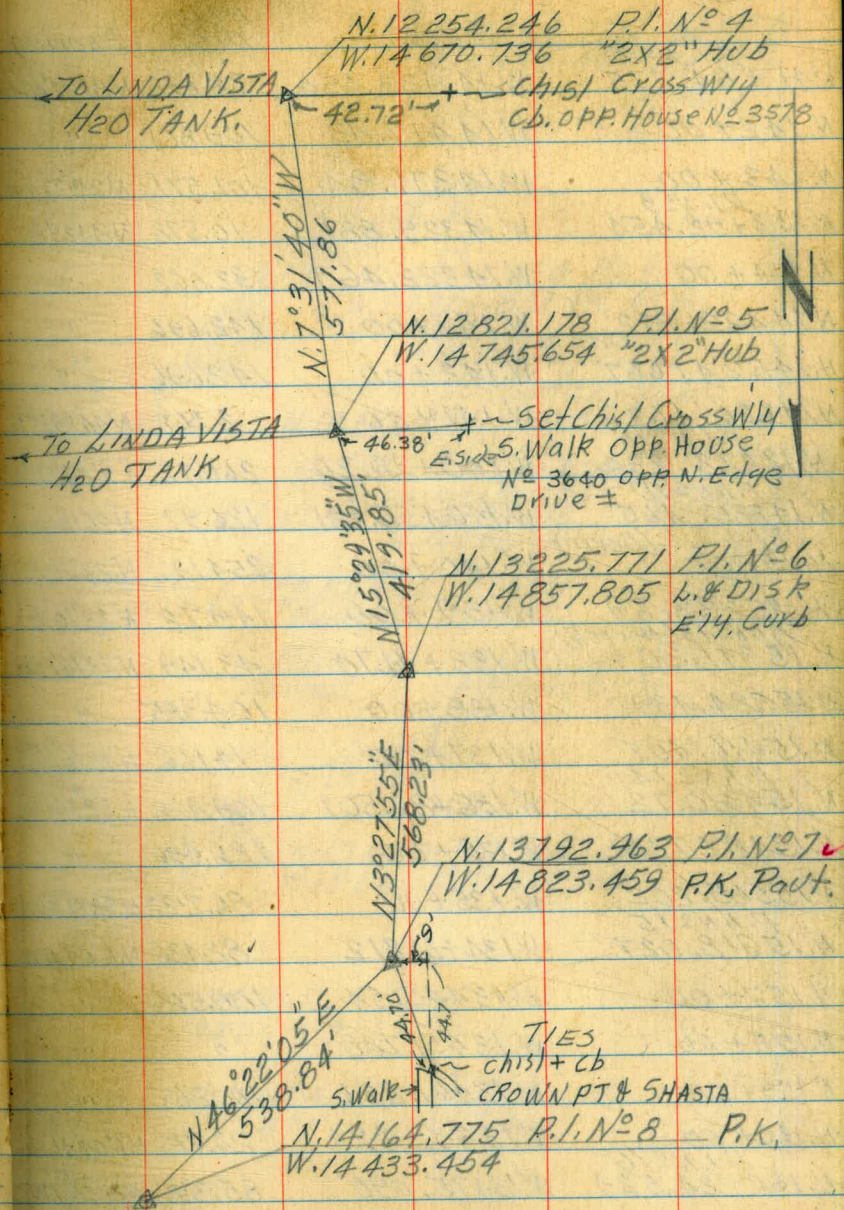 N. 12 254.246 P.I. Nº 4
W. 14 670.736 "2X2" Hub
To LINDA VISTA
H2O TANK.
42.72'
Chisl Cross W'ly
Cb. opp. House Nº 3578
N. 7° 31' 40" W
571.86
N
N. 12821.178 P.I. Nº 5
W. 14745.654 "2X2" Hub
To LINDA VISTA
H2O TANK
46.38'
E. Side
Set Chisl Cross W'ly
S. Walk opp. House
Nº 3640 opp. N. Edge
Drive ±
N 15° 29' 35" W
419.85'
N. 13225.771 P.I. Nº 6
W. 14857.805 L. & Disk
E'ly. Curb
N 3° 27' 55" E
568.23'
N. 13792.963 P.I. Nº 7
W. 14823.459 P.K. Pavt.
44.70
44.7
TIES
chisl + cb
CROWN PT & SHASTA
S. Walk
N 46° 22' 05" E
538.84'
N. 14164.775 P.I. Nº 8 P.K.
W. 14433.454